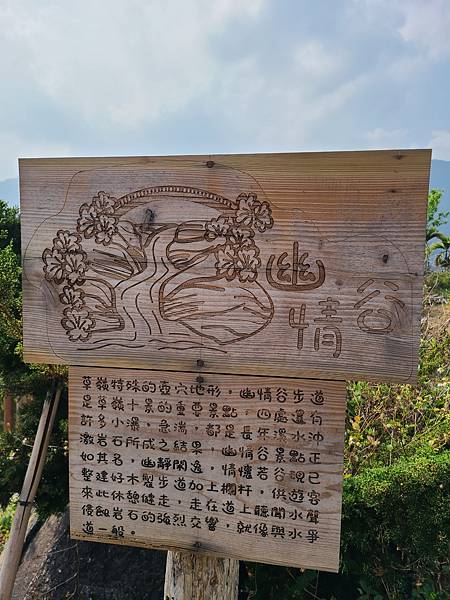 幽情谷
草嶺特殊的壺穴地形，幽情谷步道
是草嶺十景的重要景點，四處還有
許多小瀑、急湍，都是長年溪水沖
激岩石所成之結果，幽情谷景點正
如其名，幽靜閒逸，情懷若谷現已
整建好木製步道加上欄杆，供遊客
來此休憩健走，走在道上聽聞水聲
侵蝕岩石的強烈交響，就像與水爭
道一般。